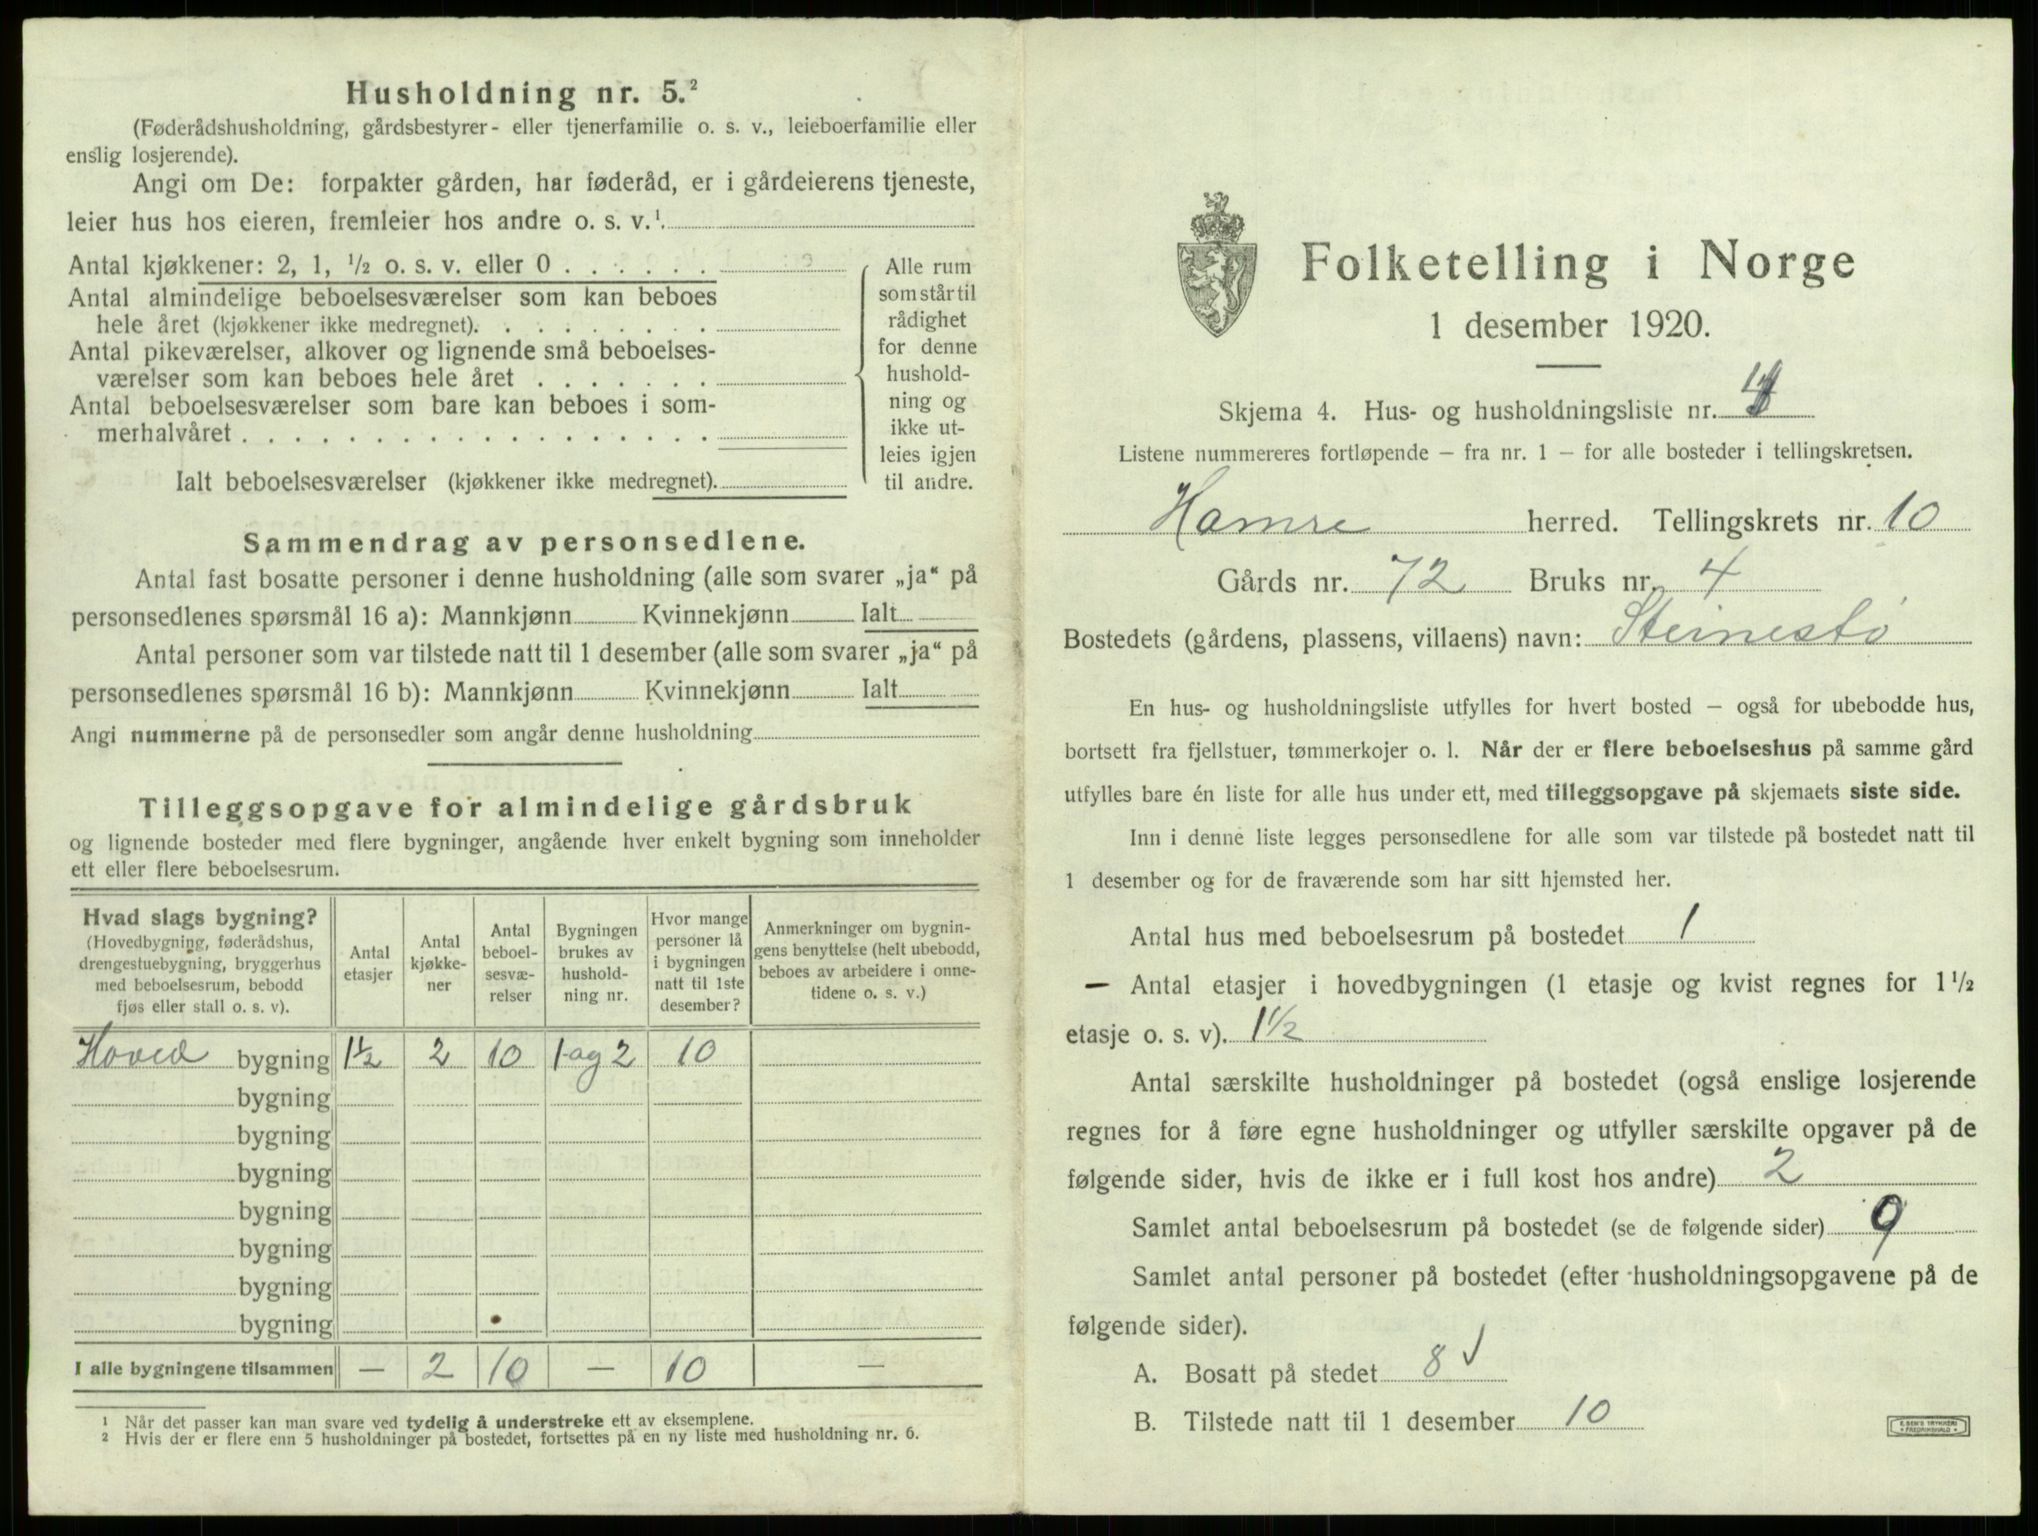 Husholdning nr. 5.²
(Føderådshusholdning, gårdsbestyrer- eller tjenerfamilie o. s. v., leieboerfamilie eller
enslig losjerende).
Angi om De: forpakter gården, har føderåd, er i gårdeierens tjeneste,
leier hus hos eieren, fremleier hos andre o. s. v.¹
Antal kjøkkener: 2, 1, ½ o. s. v. eller 0
Antal almindelige beboelsesværelser som kan beboes
hele året (kjøkkener ikke medregnet).
Antal pikeværelser, alkover og lignende små beboelses-
værelser som kan beboes hele året
Antal beboelsesværelser som bare kan beboes i som-
merhalvåret
Ialt beboelsesværelser (kjøkkener ikke medregnet).
Alle rum
som står til
rådighet
for denne
hushold-
ning og
ikke ut-
leies igjen
til andre.
Sammendrag av personsedlene.
Antal fast bosatte personer i denne husholdning (alle som svarer „ja“ på
personsedlenes spørsmål 16 a): Mannkjønn Kvinnekjønn Ialt
Antal personer som var tilstede natt til 1 desember (alle som svarer „ja“ på
personsedlenes spørsmål 16 b): Mannkjønn Kvinnekjønn Ialt
Angi nummerne på de personsedler som angår denne husholdning
Tilleggsopgave for almindelige gårdsbruk
og lignende bosteder med flere bygninger, angående hver enkelt bygning som inneholder
ett eller flere beboelsesrum.
Hvad slags bygning?
(Hovedbygning, føderådshus,
drengestuebygning, bryggerhus
med beboelsesrum, bebodd
fjøs eller stall o. s. v).
Antal
etasjer
Antal
kjøkke-
ner
Antal
beboel-
sesvæ-
relser
Bygningen
brukes av
hushold-
ning nr.
Hvor mange
personer lå
i bygningen
natt til 1ste
desember?
Anmerkninger om bygnin-
gens benyttelse (helt ubebodd,
beboes av arbeidere i onne-
tidene o. s. v.)
Hoved bygning 1½ 2 10 1 og 2 10
bygning
bygning
bygning
bygning
bygning
bygning
bygning
I alle bygningene tilsammen — 2 10 — 10 —
¹ Når det passer kan man svare ved tydelig å understreke ett av eksemplene.
² Hvis der er flere enn 5 husholdninger på bostedet, fortsettes på en ny liste med husholdning nr. 6.
Folketelling i Norge
1 desember 1920.
Skjema 4. Hus- og husholdningsliste nr.
Listene nummereres fortløpende — fra nr. 1 — for alle bosteder i tellingskretsen.
Hamre herred. Tellingskrets nr. 10
Gårds nr. 72 Bruks nr. 4
Bostedets (gårdens, plassens, villaens) navn: Steinestø
En hus- og husholdningsliste utfylles for hvert bosted — også for ubebodde hus,
bortsett fra fjellstuer, tømmerkojer o. l. Når der er flere beboelseshus på samme gård
utfylles bare én liste for alle hus under ett, med tilleggsopgave på skjemaets siste side.
Inn i denne liste legges personsedlene for alle som var tilstede på bostedet natt til
1 desember og for de fraværende som har sitt hjemsted her.
Antal hus med beboelsesrum på bostedet 1
— Antal etasjer i hovedbygningen (1 etasje og kvist regnes for 1½
etasje o. s. v). 1½
Antal særskilte husholdninger på bostedet (også enslige losjerende
regnes for å føre egne husholdninger og utfyller særskilte opgaver på de
følgende sider, hvis de ikke er i full kost hos andre) 2
Samlet antal beboelsesrum på bostedet (se de følgende sider) 9
Samlet antal personer på bostedet (efter husholdningsopgavene på de
følgende sider).
A. Bosatt på stedet 8 ✓
B. Tilstede natt til 1 desember 10